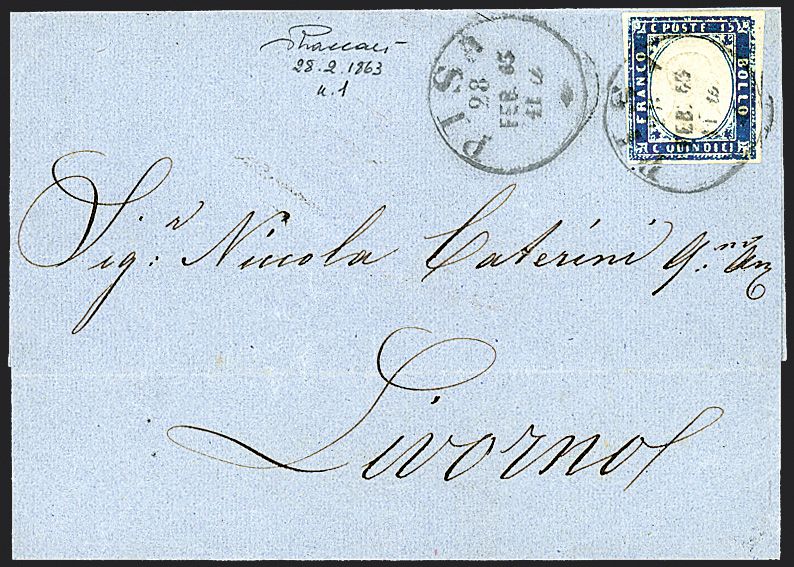 28.2.1863
n.1
PISA
28
FEB. 63
C POSTE 15
FRANCO
BOLLO
C QUINDICI
Sig.r Niccola Caterini q.m
Livorno